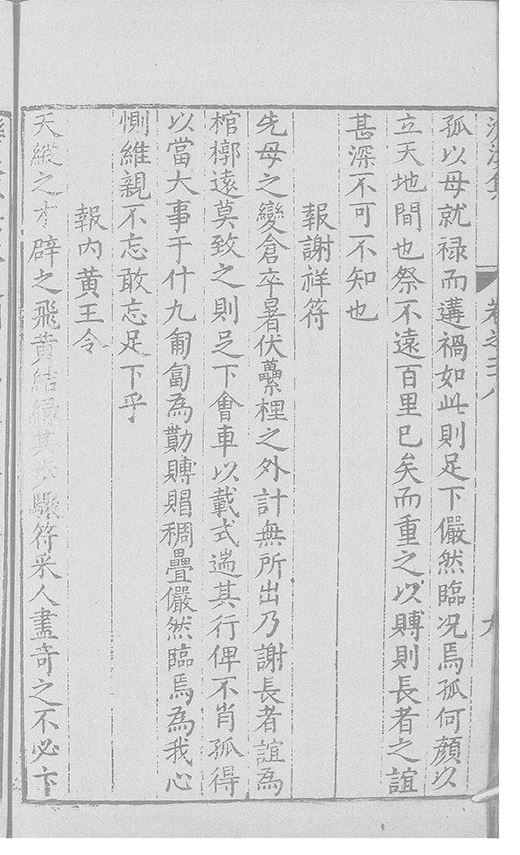 孤以母就禄而遘禍如此則足下儼然臨况焉孤何顔以
立天地間也祭不遠百里已矣而重之以賻則長者之誼
甚深不可不知也
報謝祥符
先母之變倉卒暑伏虆梩之外計無所出乃謝長者誼為
棺槨遠莫致之則足下會車以載式遄其行俾不肖孤得
以當大事于什九匍匐為勷賻賵稠疊儼然臨焉為我心
惻維親不忘敢忘足下乎
報内黄王令
天縱之才辟之飛黄結緑其步驟符采人盡奇之不必卞